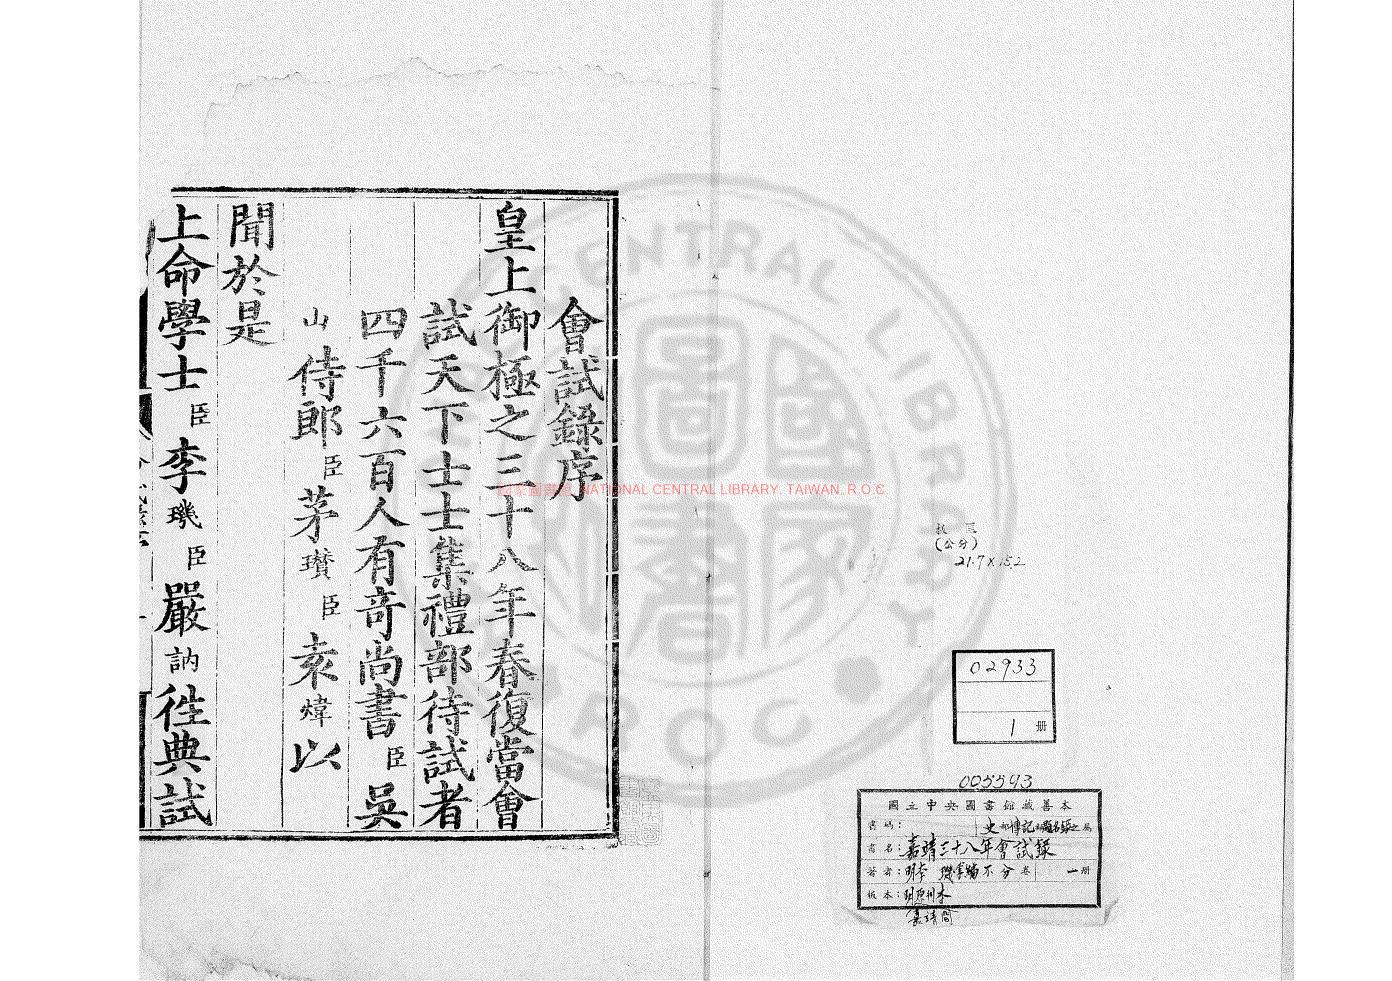 會試錄序
皇上御極之三十八年春復當會
試天下士士集禮部待試者
四千六百人有奇尚書臣吳
山侍郎臣茅瓚臣袁煒以
聞於是
上命學士臣李璣臣嚴訥徃典試
國家圖書館 NATIONAL CENTRAL LIBRARY. TAIWAN. R.O.C
NATIONAL CENTRAL LIBRARY
ROC
(公分)
21.7×15.2
02933
1册
005593
國立中央國書館藏善本
書碼:
書名:嘉靖三十八年會試錄
著者:明李璣 不分卷 一册
板本:明 刊本
嘉靖間